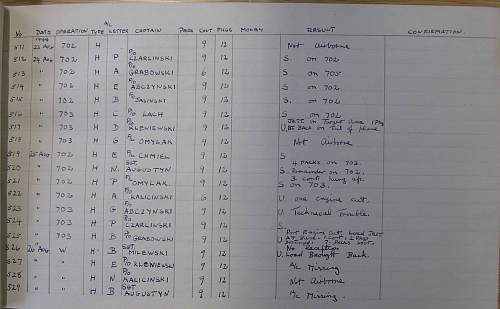 No DATE OPERATION A/C TYPE LETTER CAPTAIN PASS CONT PKGS MONEY RESULT CONFIRMATION
1944
511 23 Aug 702 H 9 12 Not Airborne
512 24 Aug 702 H P P/O CZARLINSKI 9 12 S. on 702
513 " 702 H A P/O GRABOWSKI 6 12 S on 705
514 " 702 H E F/L ABCZYNSKI 9 12 S on 702
515 " 702 H B JASINSKI 9 12 S. on 702
516 " 703 H C P/O LACH 9 12 S on 702
517 " 703 H D KLENIEWSKI 9 12 U.
518 " 703 H G F/L OMYLAK 9 12 Not Airborne
519 25 AUG 702 H E F/L CHMIEL 9 12 S. 4 PACKS on 702.
520 " 702 H N. SGT AUGUSTYN 9 12 S. Remainder on 702.
521 " 702 H P F/L OMYLAK. 9 12 S on 703.
522 " 702 H A KALICINSKI 6 12 U. one engine cut.
523 " 703 H G ABCZYNSKI 9 12 U. Technical Trouble.
524 " 703 H P CZARLINSKI 9 12 S.
525 " 703 H B P/O GRABOWSKI 9 12 U.
526 26 Aug W H B SGT MILEWSKI 9 12 No Reception U. Load Brought Back.
527 " " H E P/O KLENIEWSKI 9 12 A/c Missing
528 " " H N P/O KALICINSKI 9 12 Not Airborne
529 " " H B SGT AUGUSTYN 9 12 A/c Missing.